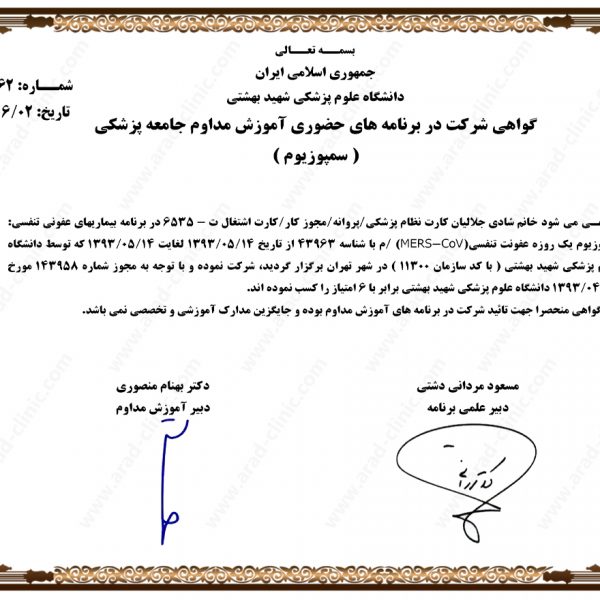 بسمه تعالی
جمهوری اسلامی ایران
دانشگاه علوم پزشکی شهید بهشتی
شماره: ۶۲
تاریخ: ۶/۰۲
گواهی شرکت در برنامه های حضوری آموزش مداوم جامعه پزشکی
( سمپوزیوم )
می شود خانم شادی جلالیان کارت نظام پزشکی/پروانه/مجوز کار/کارت اشتغال ت – ۶۵۳۵ در برنامه بیماریهای عفونی تنفسی:
یک روزه عفونت تنفسی(MERS-CoV) /م با شناسه ۴۳۹۶۳ از تاریخ ۱۳۹۳/۰۵/۱۴ لغایت ۱۳۹۳/۰۵/۱۴ که توسط دانشگاه
پزشکی شهید بهشتی ( با کد سازمان ۱۱۳۰۰ ) در شهر تهران برگزار گردید، شرکت نموده و با توجه به مجوز شماره ۱۴۳۹۵۸ مورخ
۱۳۹۳/۰۴ دانشگاه علوم پزشکی شهید بهشتی برابر با ۶ امتیاز را کسب نموده اند.
گواهی منحصرا جهت تائید شرکت در برنامه های آموزش مداوم بوده و جایگزین مدارک آموزشی و تخصصی نمی باشد.
مسعود مردانی دشتی
دبیر علمی برنامه
دکتر بهنام منصوری
دبیر آموزش مداوم
www.arad-clinic.com